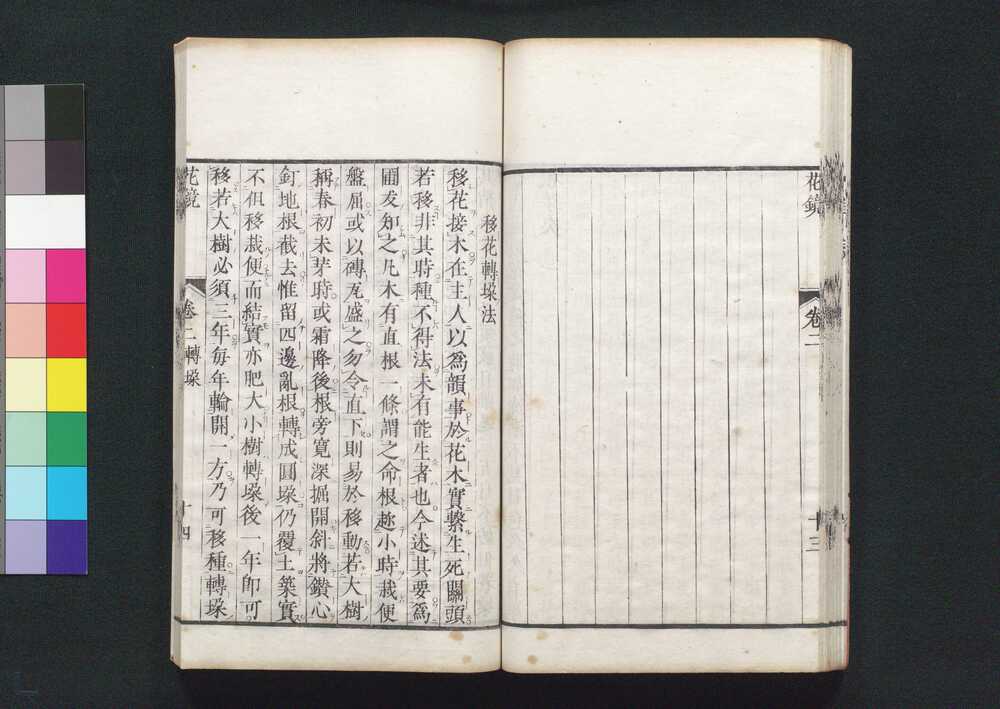 花鏡
卷二
十三
移花轉垛法
移花接木在主人以爲韻事於花木實繫生死關頭
若移非其時種不得法未有能生者也今述其要爲
圃友知之凡木有直根一條謂之命根趂小時栽便
盤屈或以磚瓦盛之勿令直下則易於移動若大樹
稱春初未芽時或霜降後根旁寬深掘開斜將鑽心
釘地根截去惟留四邊亂根轉成圓垛仍覆土築實
不但移栽便而結實亦肥大小樹轉垛後一年卽可
移若大樹必須三年每年輪開一方乃可移種轉垛
花鏡
卷二轉垛
十四